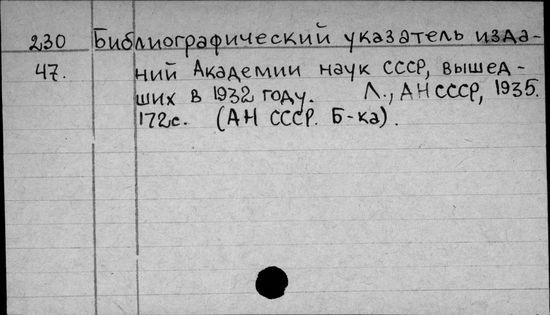 230 Библиографический указатель изда-
47. ний Академии наук СССР, вышед-
ших в 1932 году. Л., АН СССР, 1935.
172с. (АН СССР. Б-ка).